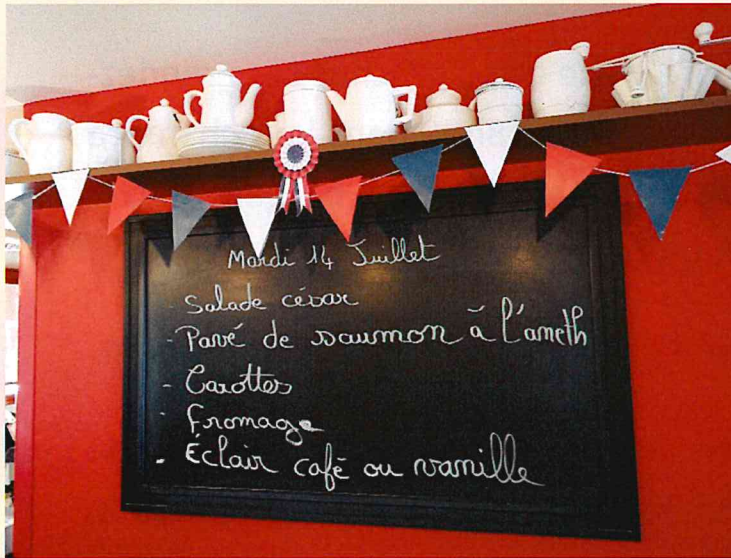 Mardi 14 Juillet
- Salade césar
- Pavé de saumon à l'aneth
- Carottes
- Fromage
- Éclair café ou vanille